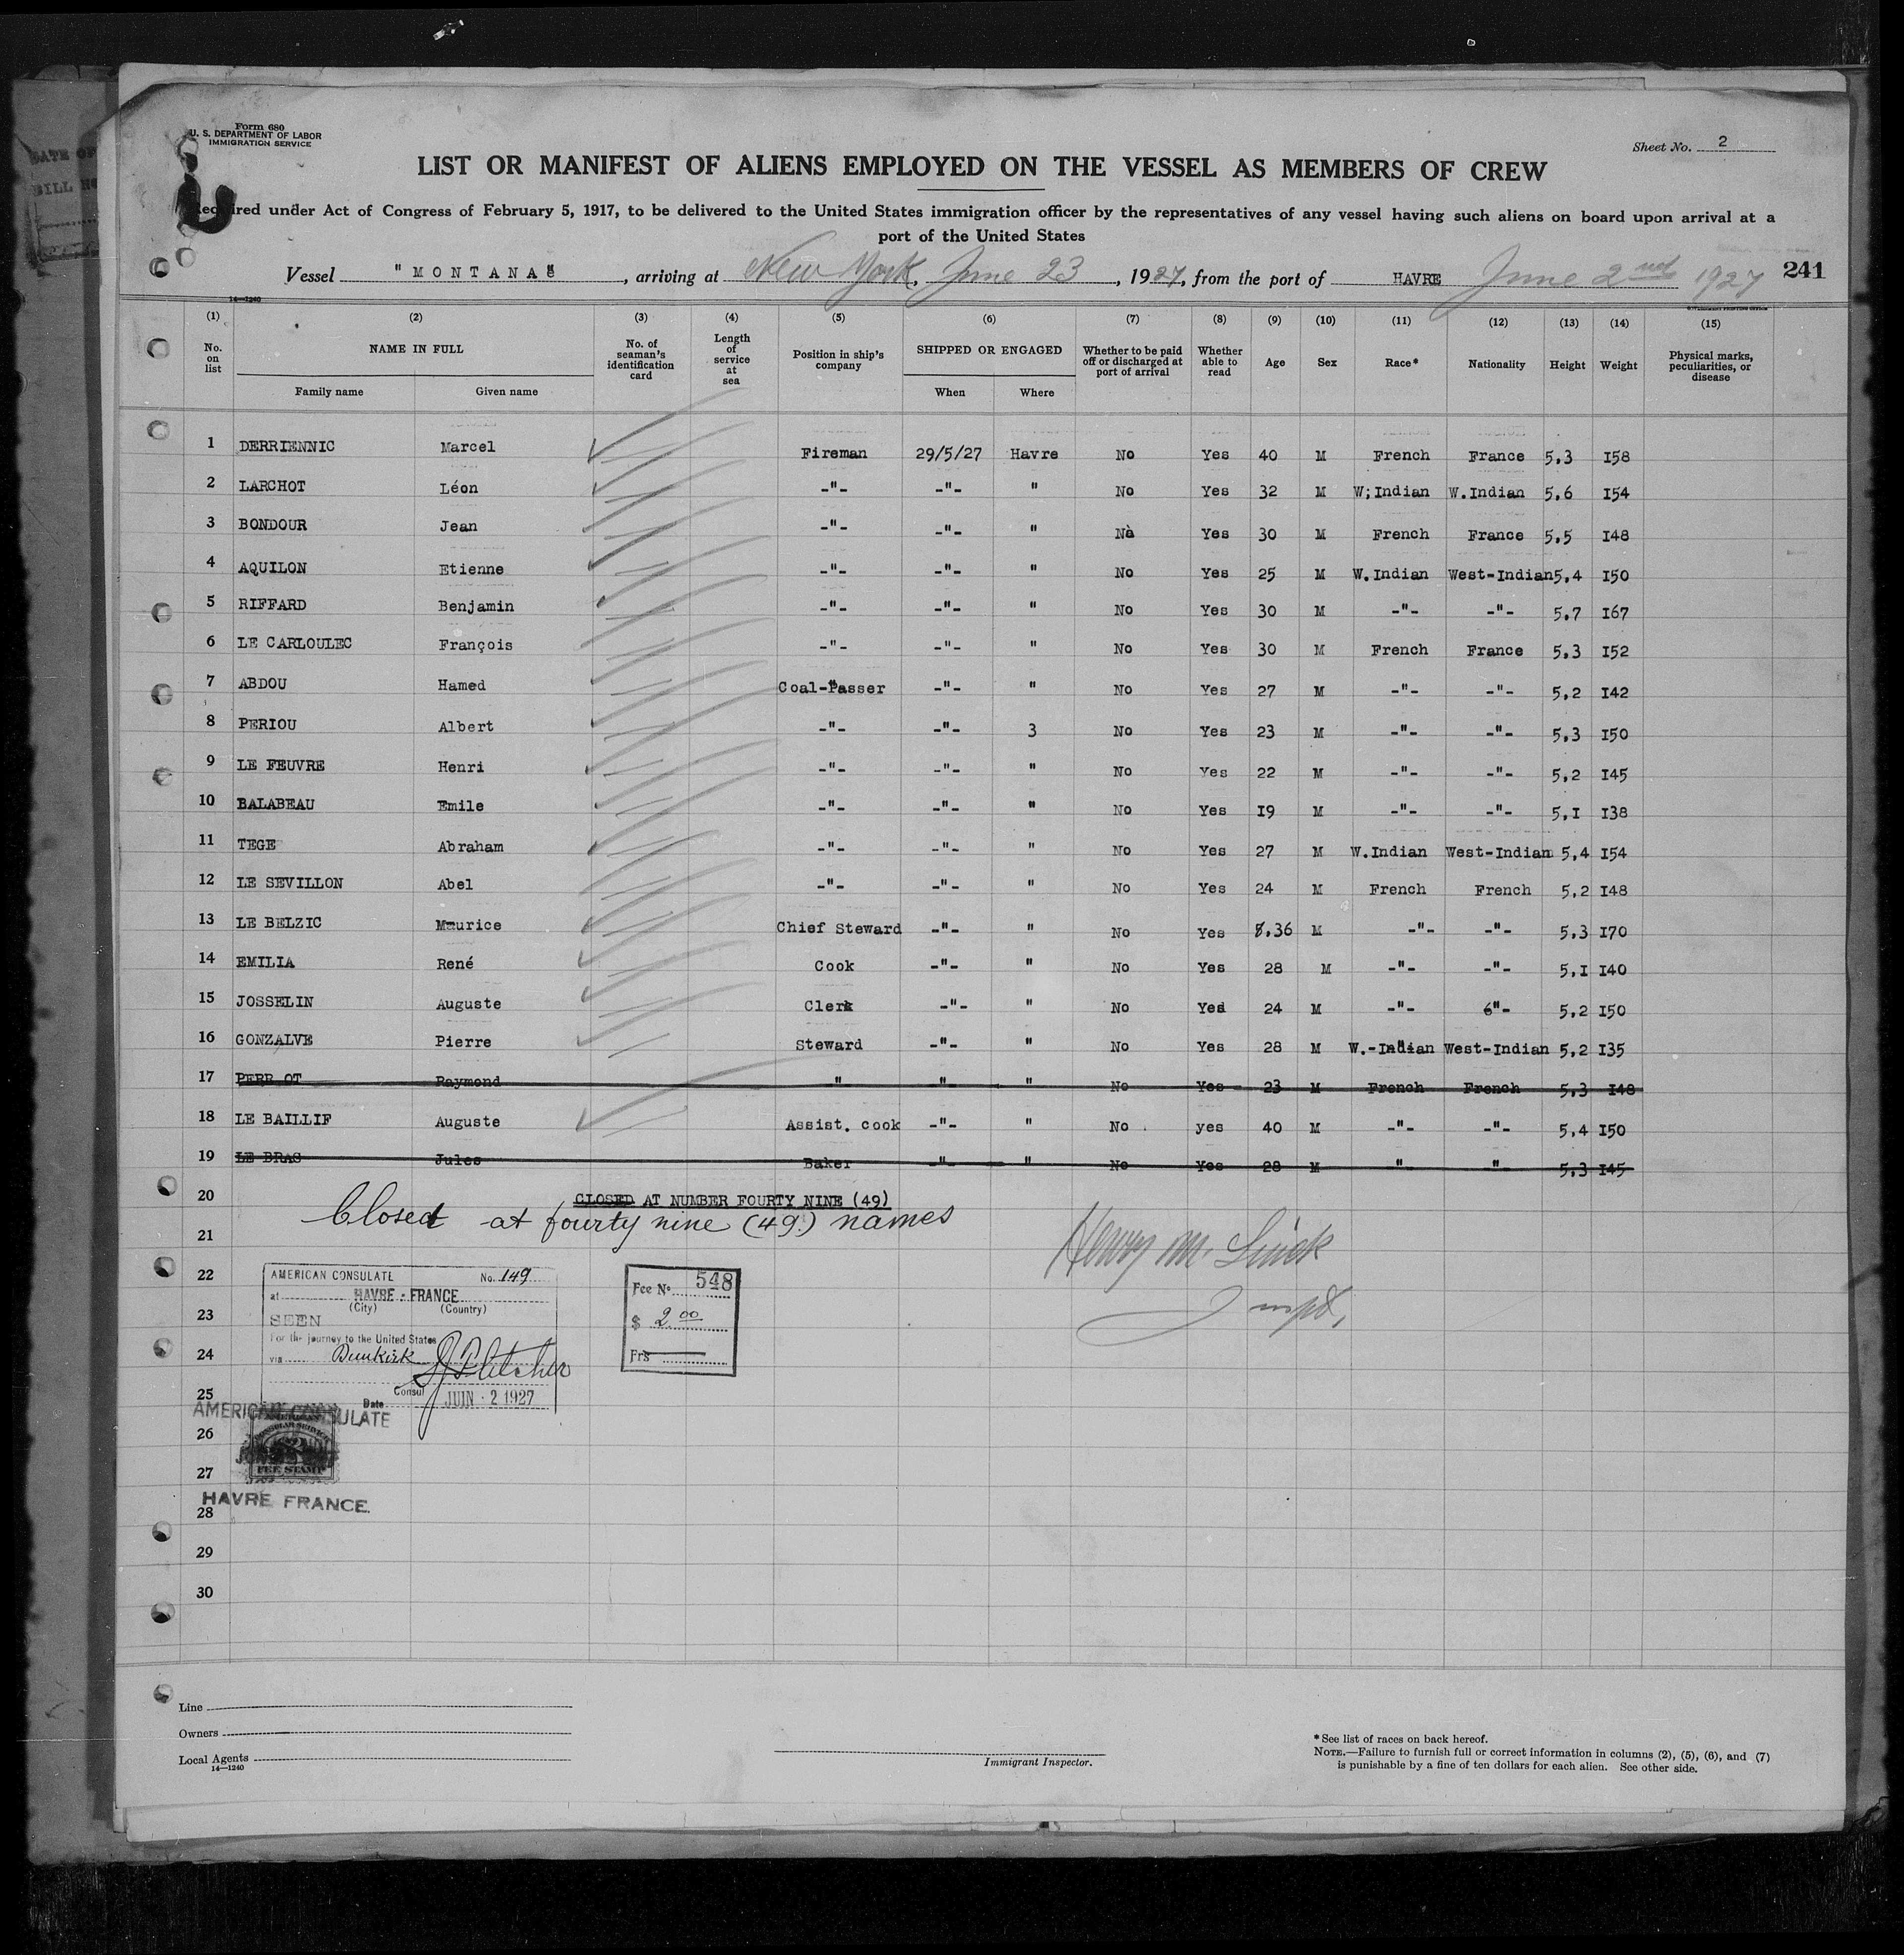 Form 680
U. S. DEPARTMENT OF LABOR
IMMIGRATION SERVICE
Sheet No. 2
LIST OR MANIFEST OF ALIENS EMPLOYED ON THE VESSEL AS MEMBERS OF CREW
Required under Act of Congress of February 5, 1917, to be delivered to the United States immigration officer by the representatives of any vessel having such aliens on board upon arrival at a
port of the United States
Vessel "MONTANA", arriving at New York, June 23, 1927, from the port of HAVRE June 2nd 1927 241
14—1240
(1) (2) (3) (4) (5) (6) (7) (8) (9) (10) (11) (12) (13) (14) (15)
No. on list NAME IN FULL Family name Given name No. of seaman's identification card Length of service at sea Position in ship's company SHIPPED OR ENGAGED When Where Whether to be paid off or discharged at port of arrival Whether able to read Age Sex Race* Nationality Height Weight Physical marks, peculiarities, or disease
1 DERRIENNIC Marcel Fireman 29/5/27 Havre No Yes 40 M French France 5,3 I58
2 LARCHOT Léon -"- -"- " No Yes 32 M W;Indian W.Indian 5,6 I54
3 BONDOUR Jean -"- -"- " No Yes 30 M French France 5,5 I48
4 AQUILON Etienne -"- -"- " No Yes 25 M W.Indian West-Indian 5,4 I50
5 RIFFARD Benjamin -"- -"- " No Yes 30 M -"- -"- 5,7 I67
6 LE CARLOULEC François -"- -"- " No Yes 30 M French France 5,3 I52
7 ABDOU Hamed Coal-Passer -"- " No Yes 27 M -"- -"- 5,2 I42
8 PERIOU Albert -"- -"- 3 No Yes 23 M -"- -"- 5,3 I50
9 LE FEUVRE Henri -"- -"- " No Yes 22 M -"- -"- 5,2 I45
10 BALABEAU Emile -"- -"- " No Yes I9 M -"- -"- 5,I I38
11 TEGE Abraham -"- -"- " No Yes 27 M W.Indian West-Indian 5,4 I54
12 LE SEVILLON Abel -"- -"- " No Yes 24 M French French 5,2 I48
13 LE BELZIC Maurice Chief Steward -"- " No Yes 36 M -"- -"- 5,3 I70
14 EMILIA René Cook -"- " No Yes 28 M -"- -"- 5,I I40
15 JOSSELIN Auguste Clerk -"- " No Yes 24 M -"- -"- 5,2 I50
16 GONZALVE Pierre Steward -"- " No Yes 28 M W.-Indian West-Indian 5,2 I35
17 PERROT Raymond " -"- " No Yes 23 M French French 5,3 I48
18 LE BAILLIF Auguste Assist. cook -"- " No yes 40 M -"- -"- 5,4 I50
19 LE BRAS Jules Baker -"- " No Yes 28 M " " 5,3 I45
20 CLOSED AT NUMBER FOURTY NINE (49)
Closed at fourty nine (49.) names
21
Henry M.
22
AMERICAN CONSULATE No. 149
at HAVRE - FRANCE
(City) (Country)
23
SEEN
For the journey to the United States
24
via Dunkirk
Fletcher
Consul
25
Date JUIN 2 1927
Fee No 548
$ 2.00
Frs
AMERICAN CONSULATE
26
AMERICAN CONSULAR SERVICE
27
FEE STAMP
HAVRE, FRANCE.
28
29
30
Line
Owners
Local Agents
14—1240
Immigrant Inspector.
* See list of races on back hereof.
NOTE.—Failure to furnish full or correct information in columns (2), (5), (6), and (7)
is punishable by a fine of ten dollars for each alien. See other side.